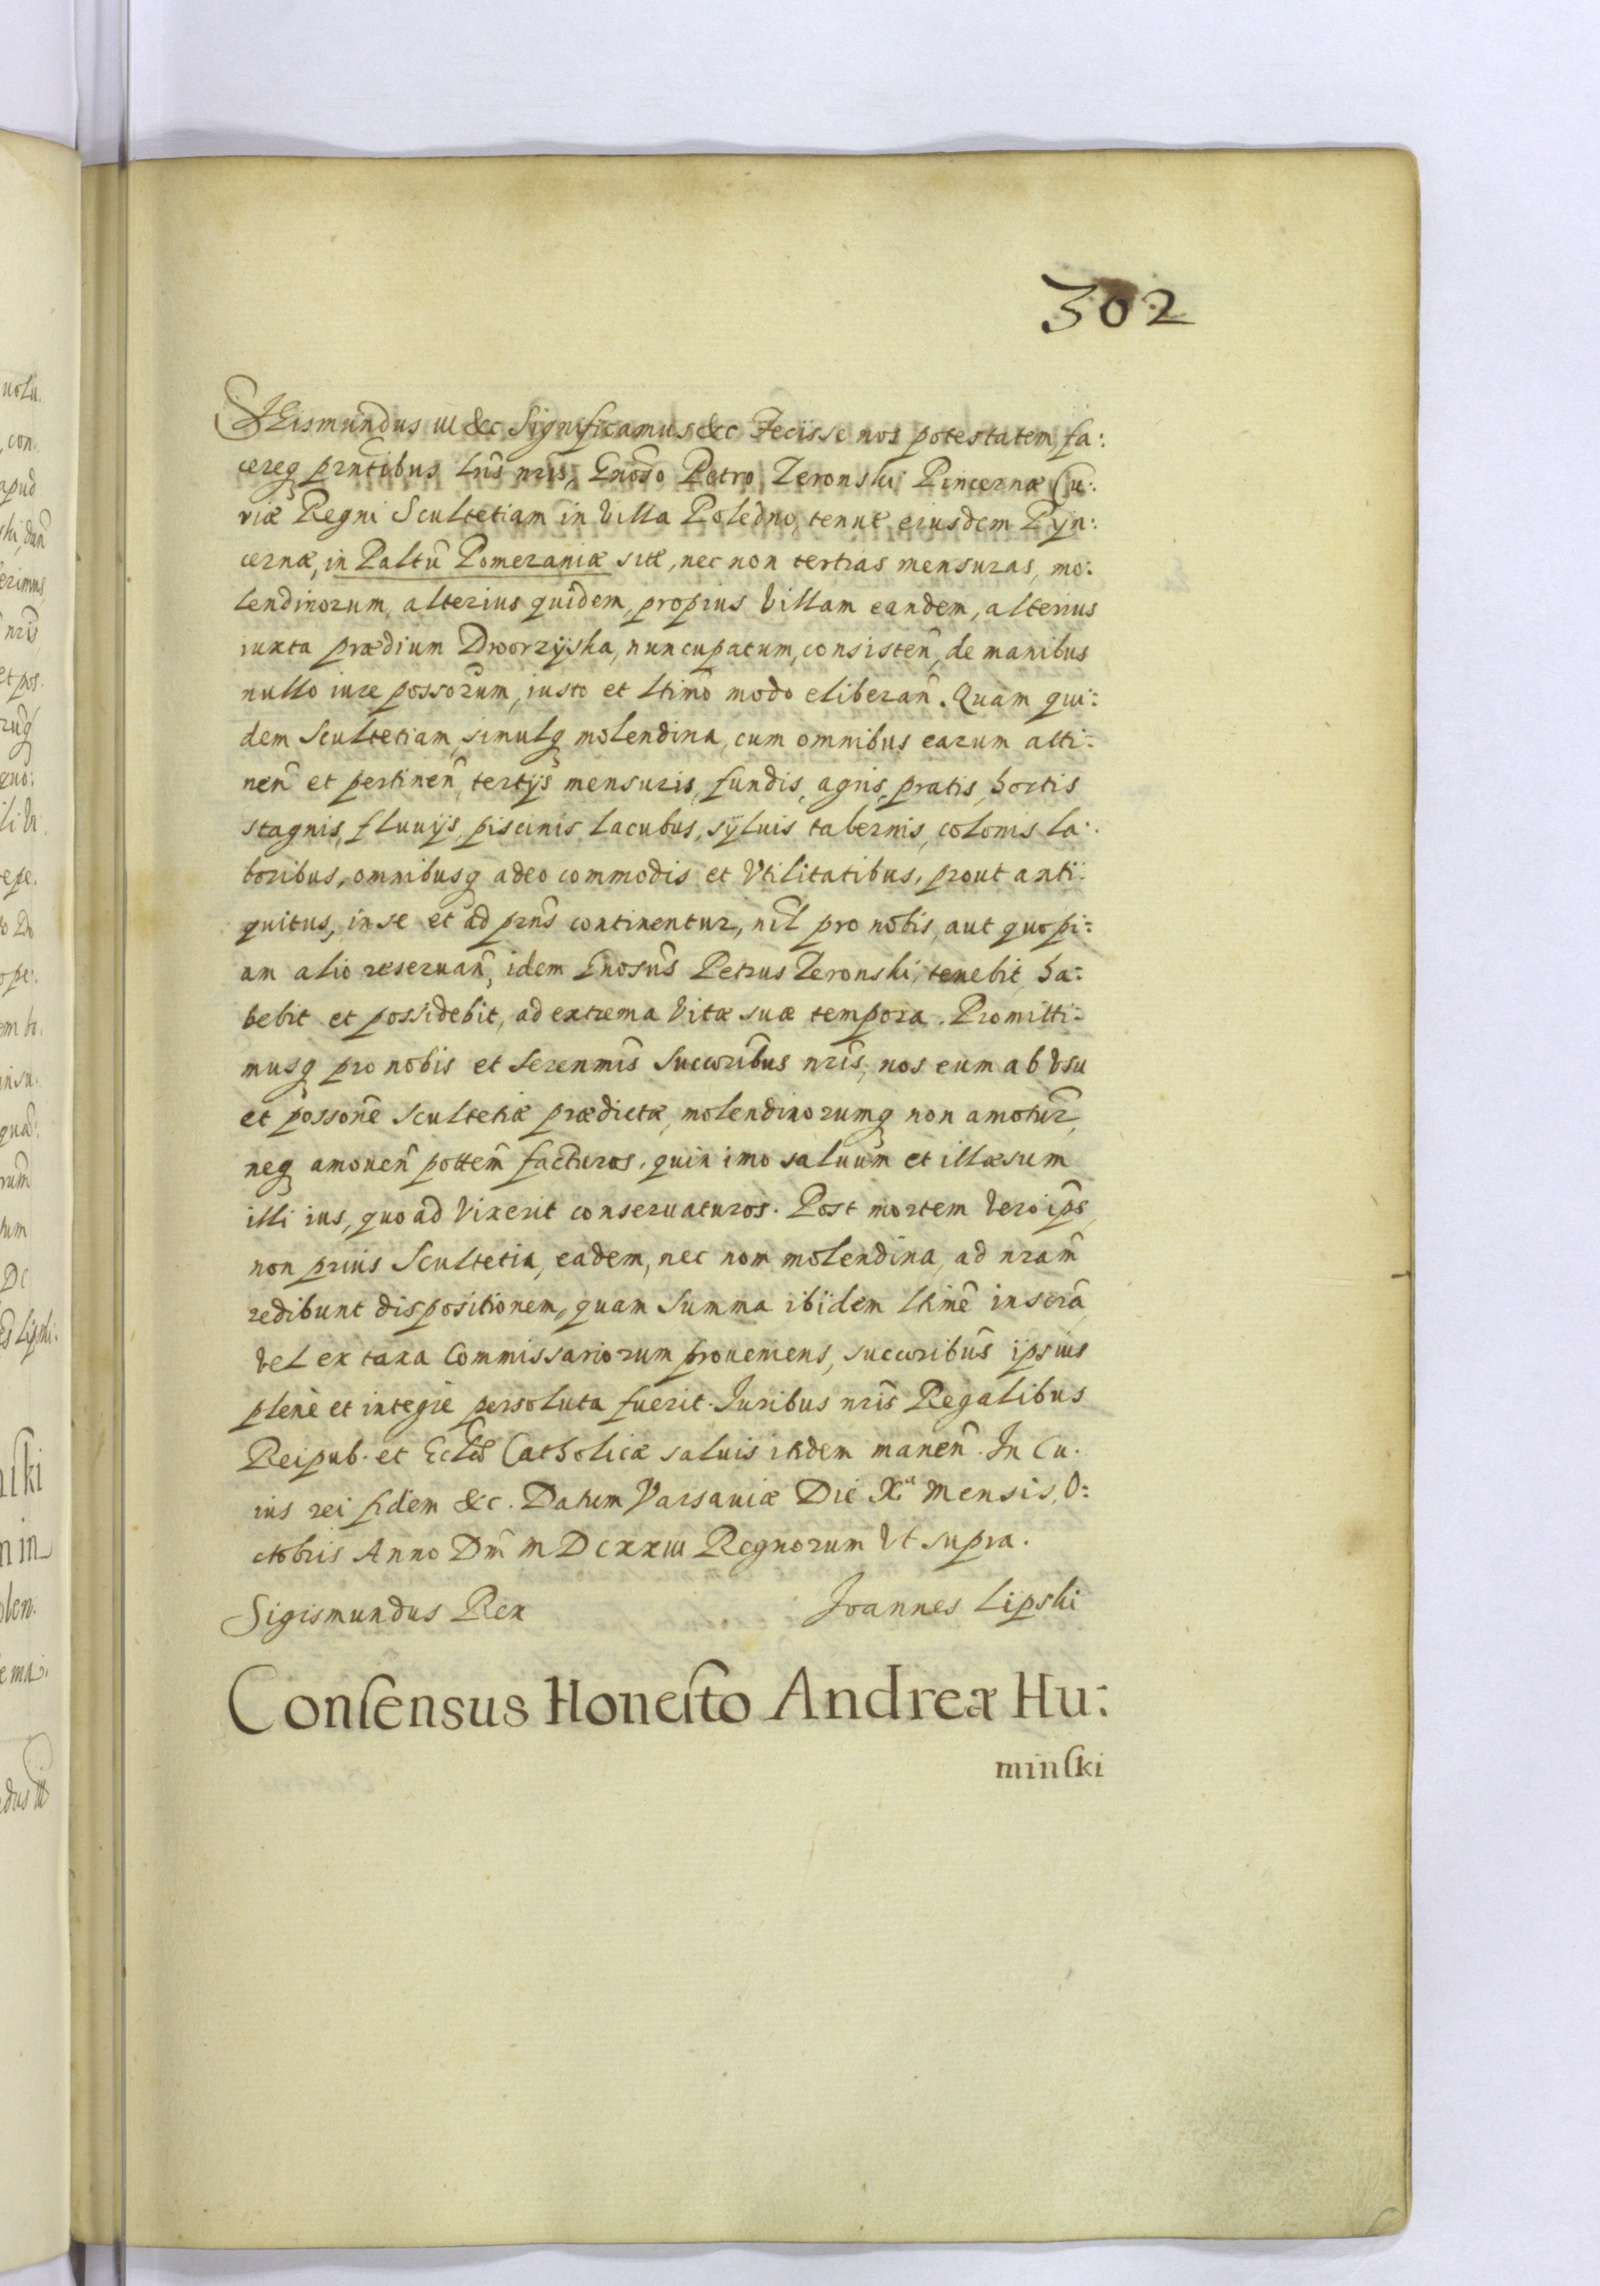 302
Sigismundus III &c Significamus &c Fecisse nos potestatem, fa:
cereq prntibus Lris nris, Gnoso Petro Zeronski Pincernæ Cu:
riæ Regni Scultetiam in Villa Poledno, tenutæ eiusdem Pyn:
cernæ, in Paltu Pomeraniæ sitæ, nec non tertias mensuras, mo:
lendinorum, alterius quidem, propius Villam eandem, alterius
iuxta prædium Dworzyska, nuncupatum, consisten, de manibus
nullo iure possorum, iusto et ltimo modo eliberan. Quam qui:
dem Scultetiam, simulq molendina, cum omnibus earum atti:
nen et pertinen, tertijs mensuris, fundis, agris, pratis, hortis
stagnis, fluuijs, piscinis, lacubus, syluis tabernis, colonis la:
boribus, omnibusq adeo commodis et Vtilitatibus, prout anti:
quitus, in se et ad prns continentur, nil pro nobis, aut quopi:
am alio reseruan, idem Gnosus Petrus Zeronski, tenebit, ha:
bebit et possidebit, ad extrema Vitæ suæ tempora. Promitti:
musq pro nobis et Serenmis Succoribus nris, nos eum ab Vsu
et possone Scultetiæ prædictæ, molendinorumq non amotur,
neq amouen pottem facturos, quin imo saluum et illæsum
illi ius, quoad Vixerit conseruaturos. Post mortem Vero ips,
non prius Scultetia, eadem, nec non molendina, ad nram
redibunt dispositionem, quam Summa ibidem ltime inscra,
Vel ex taxa Commissariorum proueniens, succoribus ipsius
plene et integre persoluta fuerit. Juribus nris Regalibus
Reipub. et Eclæ Catholicæ saluis itidem manen. In Cu:
ius rei fidem &c. Datum Varsauiæ Die Xa Mensis, O:
ctobris Anno Dni MDCXXIII Regnorum Vt supra.
Sigismundus Rex Joannes Lipski
Consensus Honesto Andreæ Hu:
minski